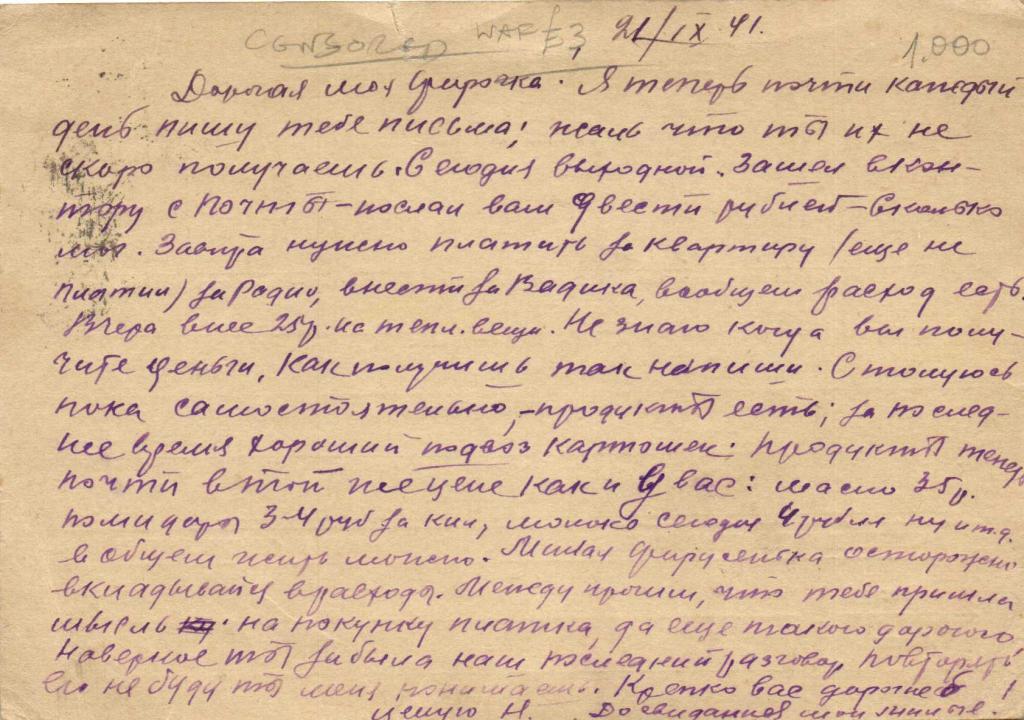 CENSORED WAF £3 21/IX 41. 1.000
Дорогая моя Фирочка. Я теперь почти каждый
день пишу тебе письма; жаль что ты их не
скоро получаешь. Сегодня выходной. Зашел в кон-
тору с почты - послал вам двести рублей - сколько
мог. Завтра нужно платить за квартиру (еще не
платил) за Радио, внести за Вадика, вообщем расход есть.
Вчера внес 25р. на тепл. вещи. Не знаю когда вы полу-
чите деньги, как получишь так напиши. Столуюсь
пока самостоятельно, - продукты есть; за послед-
нее время хороший подвоз картошек. Продукты теперь
почти в той же цене как и у вас: масло 35р.
помидоры 3-4 руб за кил, молоко сегодня 4 рубля ну и т.д.
в общем жить можно. Милая Фирусенька осторожно
вкладывайся в расходы. Между прочим, что тебе пришла
мысль на покупку платка, да еще такого дорогого
Наверное ты забыла наш последний разговор, повторять
его не буду ты меня понимаешь. Крепко вас дорогие
целую Н. До свидания мои милые.